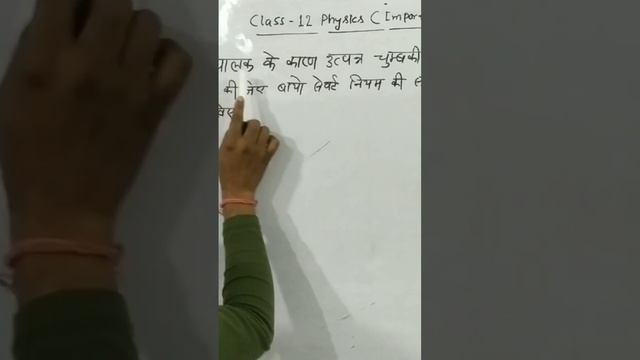 Class-12 Physics (Impor
चालक के कारण उत्पन्न चुम्बकी
की बायो सेवर्ट नियम की